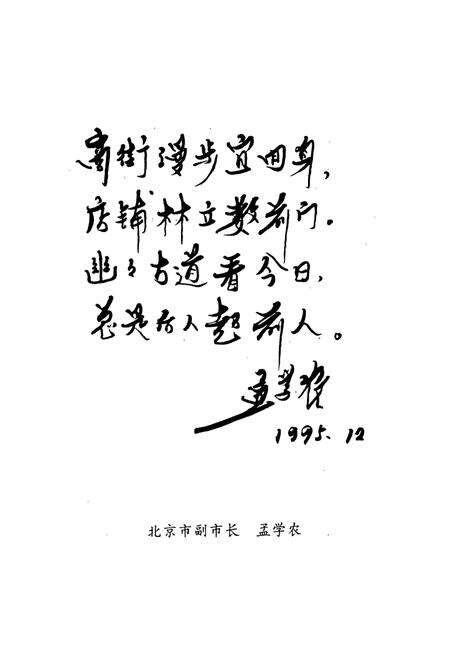 商街漫步宜回身,
店铺林立数前门。
幽幽古道看今日,
总是后人超前人。
孟学农
1995.12
北京市副市长 孟学农